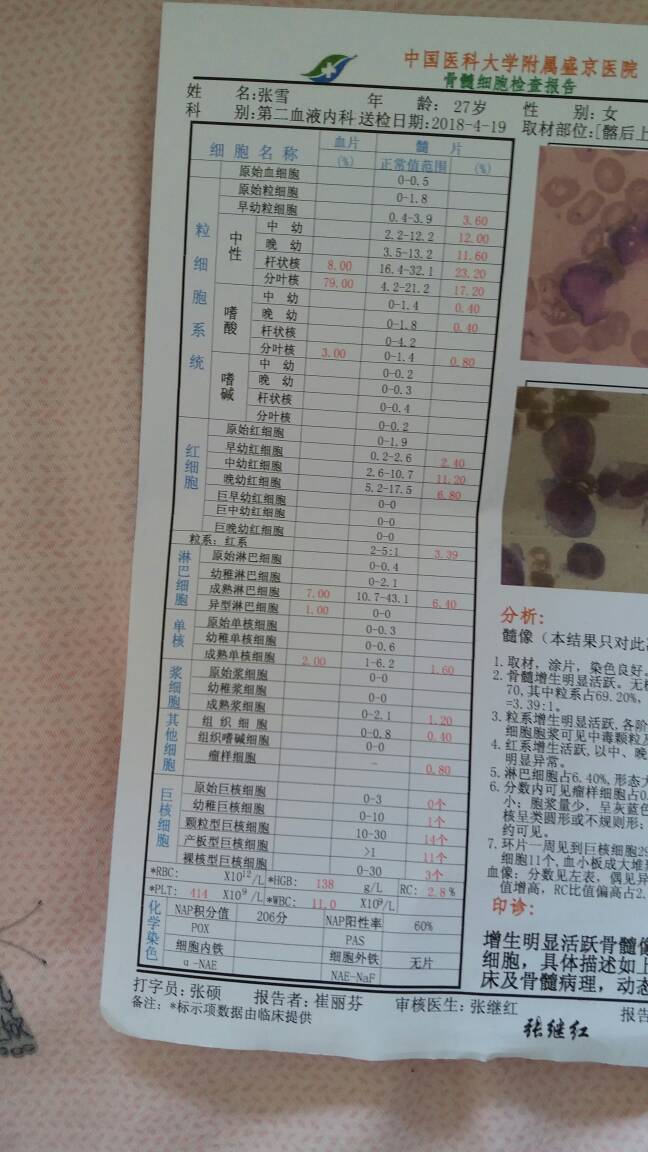 中国医科大学附属盛京医院
骨髓细胞检查报告
姓 名:张雪 年 龄: 27岁 性 别:女
科 别:第二血液内科 送检日期:2018-4-19 取材部位:[髂后上
细 胞 名 称 血片 (%) 髓 片 正常值范围 (%)
原始血细胞 0-0.5
粒细胞系统
原始粒细胞 0-1.8
早幼粒细胞 0.4-3.9 3.60
中性
中 幼 2.2-12.2 12.00
晚 幼 3.5-13.2 11.60
杆状核 8.00 16.4-32.1 23.20
分叶核 79.00 4.2-21.2 17.20
嗜酸
中 幼 0-1.4 0.40
晚 幼 0-1.8 0.40
杆状核 0-4.2
分叶核 3.00 0-1.4 0.80
嗜碱
中 幼 0-0.2
晚 幼 0-0.3
杆状核 0-0.4
分叶核 0-0.2
红细胞
原始红细胞 0-1.9
早幼红细胞 0.2-2.6 2.40
中幼红细胞 2.6-10.7 11.20
晚幼红细胞 5.2-17.5 6.80
巨早幼红细胞 0-0
巨中幼红细胞 0-0
巨晚幼红细胞 0-0
粒系：红系 2-5:1 3.39
淋巴细胞
原始淋巴细胞 0-0.4
幼稚淋巴细胞 0-2.1
成熟淋巴细胞 7.00 10.7-43.1 6.40
异型淋巴细胞 1.00 0-0
单核
原始单核细胞 0-0.3
幼稚单核细胞 0-0.6
成熟单核细胞 2.00 1-6.2 1.60
浆细胞
原始浆细胞 0-0
幼稚浆细胞 0-0
成熟浆细胞 0-2.1 1.20
其他细胞
组 织 细 胞 0-0.8 0.40
组织嗜碱细胞 0-0
瘤样细胞 - 0.80
巨核细胞
原始巨核细胞 0-3 0个
幼稚巨核细胞 0-10 1个
颗粒型巨核细胞 10-30 14个
产板型巨核细胞 >1 11个
裸核型巨核细胞 0-30 3个
*RBC: X10¹²/L *HGB: 138 g/L RC: 2.8 %
*PLT: 414 X10⁹/L *WBC: 11.0 X10⁹/L
化学染色
NAP积分值 206分 NAP阳性率 60%
POX PAS
细胞内铁 细胞外铁 无片
α-NAE NAE-NaF
打字员:张硕 报告者:崔丽芬 审核医生:张继红 报告
备注：*标示项数据由临床提供
张继红
分析:
髓像（本结果只对此
1.取材，涂片，染色良好。
2.骨髓增生明显活跃。无
70,其中粒系占69.20%,
=3.39:1。
3.粒系增生明显活跃,各阶
细胞胞浆可见中毒颗粒及
4.红系增生活跃,以中、晚
明显异常。
5.淋巴细胞占6.40%,形态大
6.分数内可见瘤样细胞占0.
小；胞浆量少，呈灰蓝色
核呈类圆形或不规则形；
约可见。
7.环片一周见到巨核细胞29
细胞11个,血小板成大堆
血像：分数见左表，偶见异
值增高，RC比值偏高占2.
印诊:
增生明显活跃骨髓像
细胞，具体描述如上
床及骨髓病理，动态